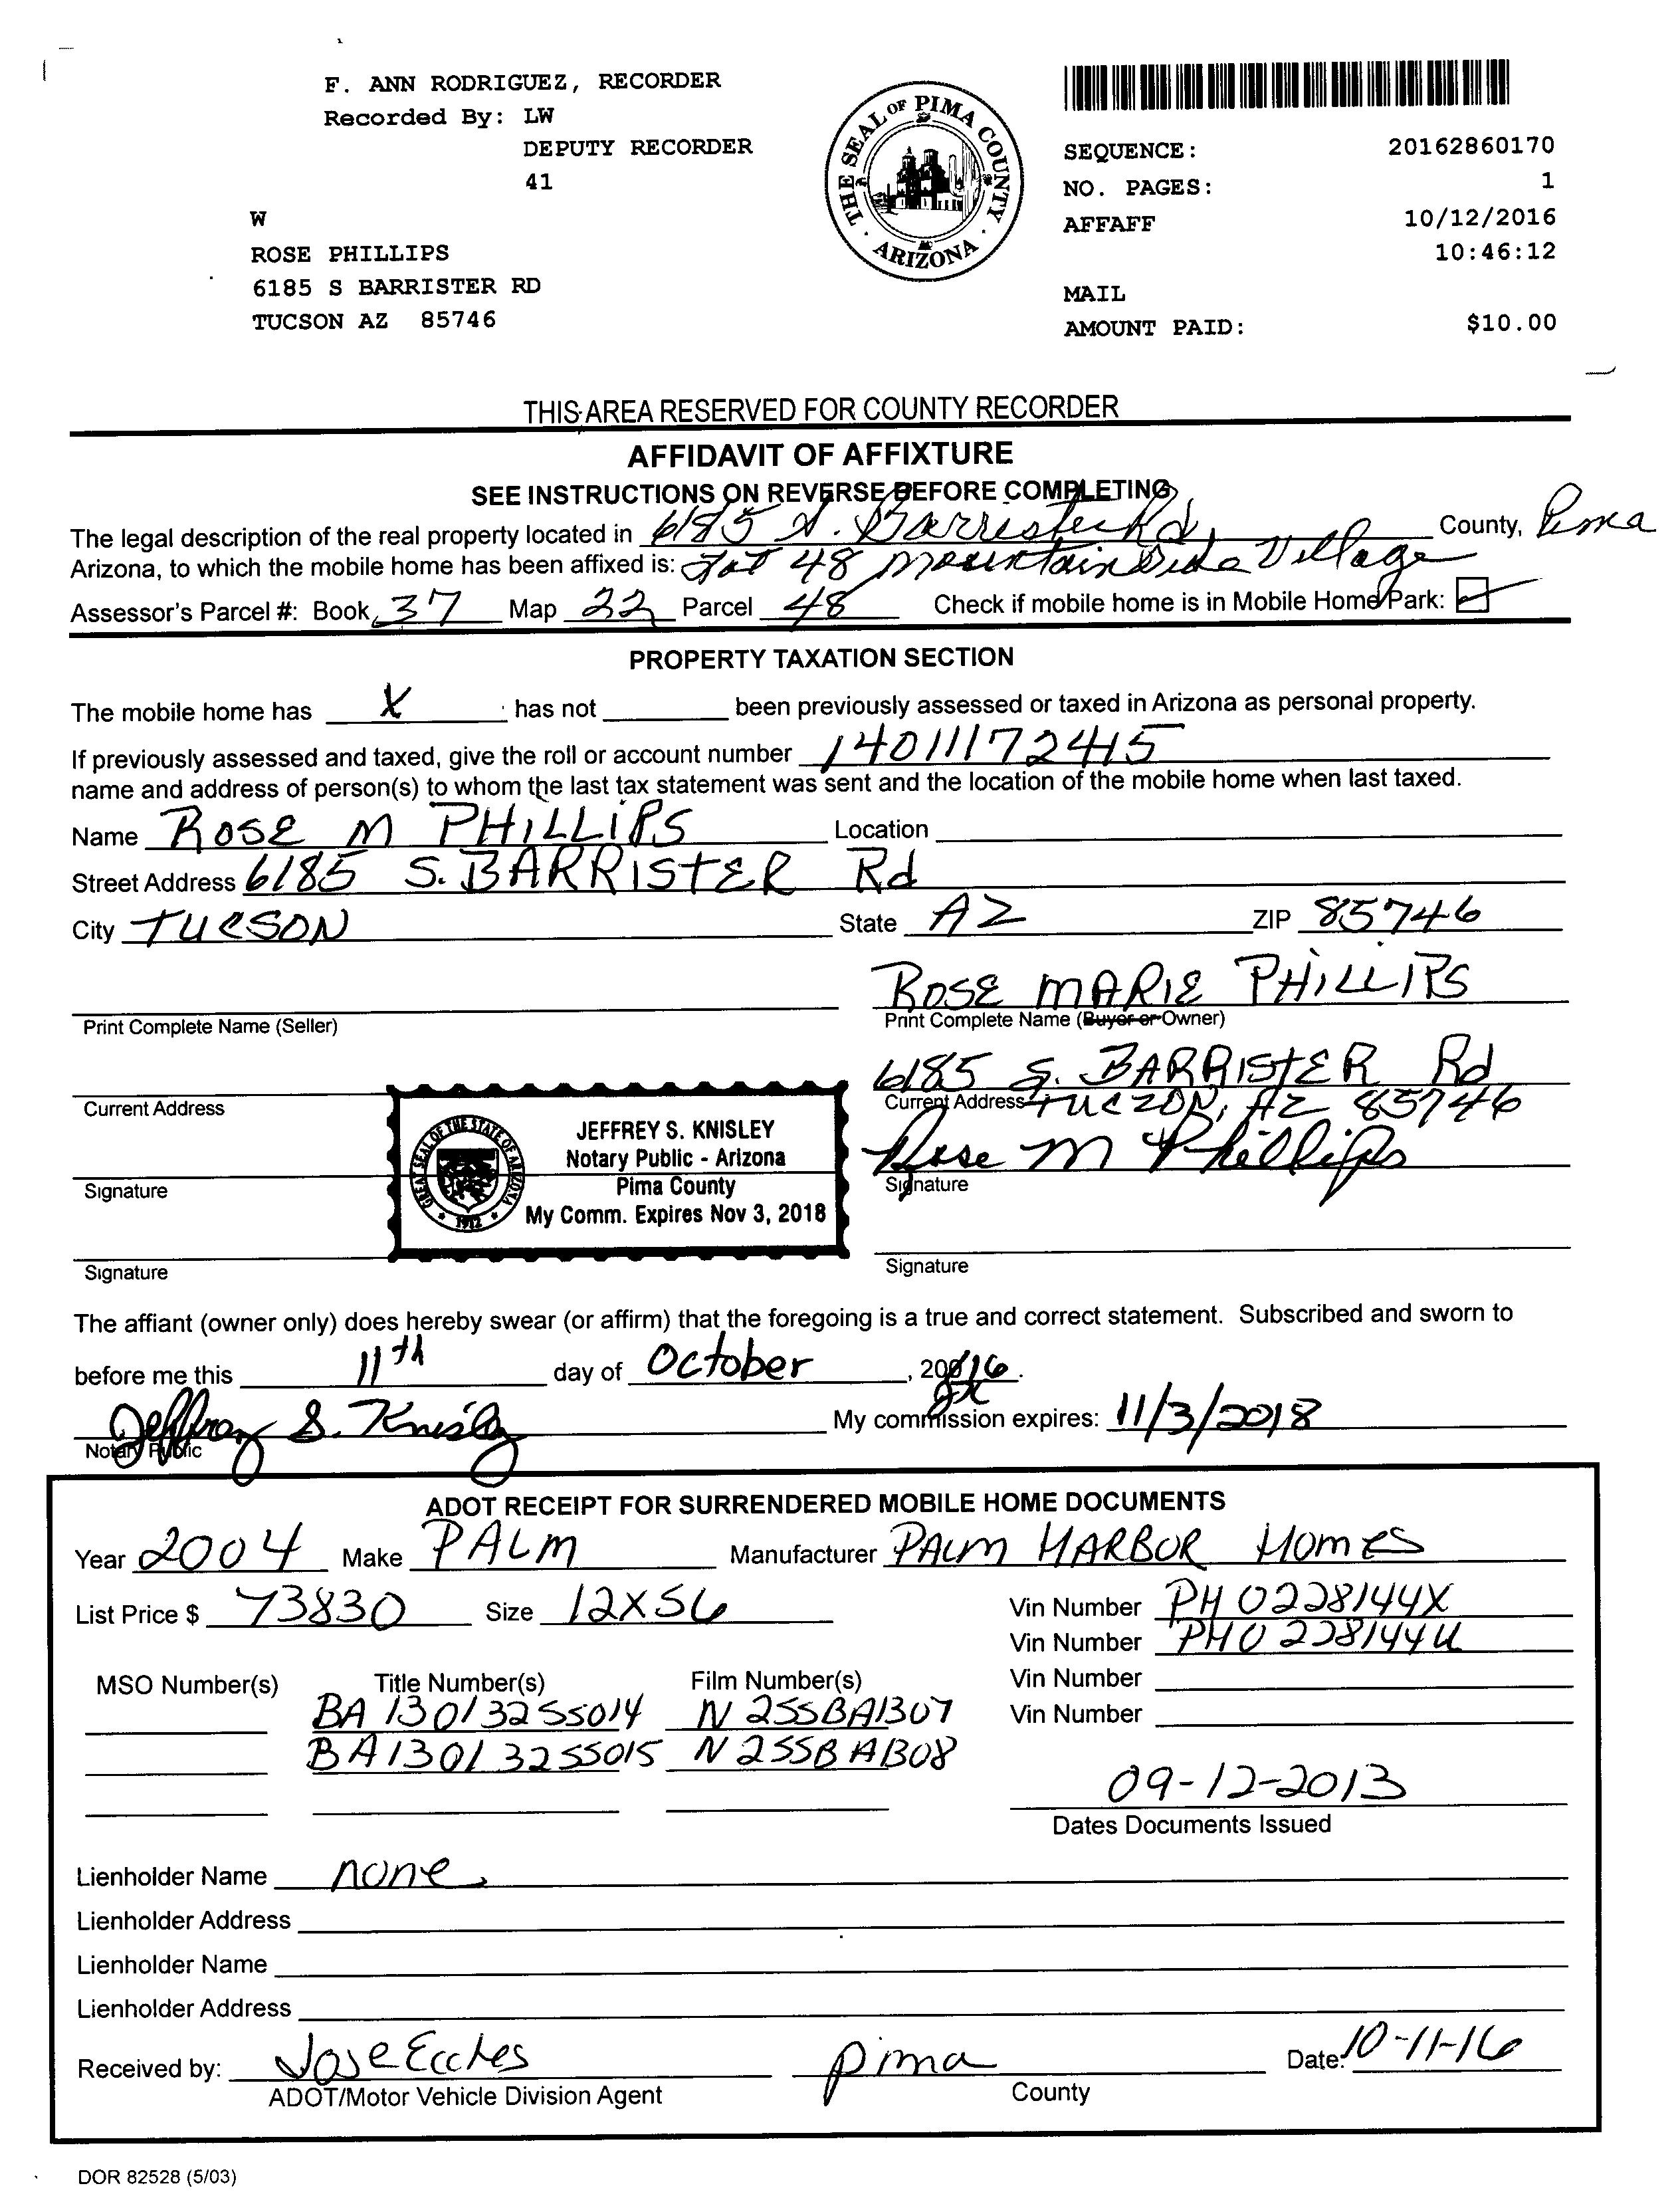 F. ANN RODRIGUEZ, RECORDER
Recorded By: LW
DEPUTY RECORDER
41
W
ROSE PHILLIPS
6185 S BARRISTER RD
TUCSON AZ 85746
THE SEAL OF PIMA COUNTY
ARIZONA
SEQUENCE: 20162860170
NO. PAGES: 1
AFFAFF 10/12/2016
10:46:12
MAIL
AMOUNT PAID: $10.00
THIS AREA RESERVED FOR COUNTY RECORDER
AFFIDAVIT OF AFFIXTURE
SEE INSTRUCTIONS ON REVERSE BEFORE COMPLETING
The legal description of the real property located in 6185 S. Barrister Rd, County, Pima
Arizona, to which the mobile home has been affixed is: Lot 48 Mountain Side Village
Assessor's Parcel #: Book 37 Map 22 Parcel 48 Check if mobile home is in Mobile Home Park: ✓
PROPERTY TAXATION SECTION
The mobile home has X has not been previously assessed or taxed in Arizona as personal property.
If previously assessed and taxed, give the roll or account number 14011172415
name and address of person(s) to whom the last tax statement was sent and the location of the mobile home when last taxed.
Name ROSE M PHILLIPS Location
Street Address 6185 S. BARRISTER Rd
City TUCSON State AZ ZIP 85746
ROSE MARIE PHILLIPS
Print Complete Name (Seller) Print Complete Name (Buyer or Owner)
6185 S. BARRISTER Rd
Current Address Current Address TUCZON, AZ 85746
JEFFREY S. KNISLEY
Notary Public - Arizona
Pima County
My Comm. Expires Nov 3, 2018
GREAT SEAL OF THE STATE OF ARIZONA
1912
Rose M Phillips
Signature Signature
Signature Signature
The affiant (owner only) does hereby swear (or affirm) that the foregoing is a true and correct statement. Subscribed and sworn to
before me this 11th day of October, 2016.
Jeffrey S. Knisley My commission expires: 11/3/2018
Notary Public
ADOT RECEIPT FOR SURRENDERED MOBILE HOME DOCUMENTS
Year 2004 Make PALM Manufacturer PALM HARBOR Homes
List Price $ 73830 Size 12X56 Vin Number PH0228144X
Vin Number PH0228144U
MSO Number(s) Title Number(s) Film Number(s) Vin Number
BA13013255014 N255BA1307 Vin Number
BA13013255015 N255BA1308
09-12-2013
Dates Documents Issued
Lienholder Name none
Lienholder Address
Lienholder Name
Lienholder Address
Received by: Jose Eccles Pima Date: 10-11-16
ADOT/Motor Vehicle Division Agent County
DOR 82528 (5/03)